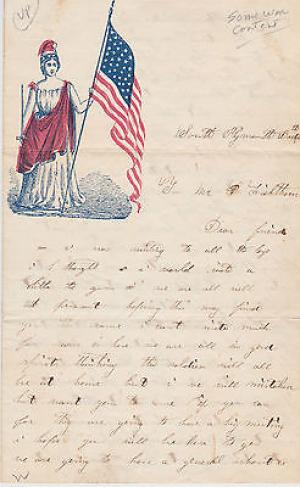 VP
Some war content
South Plymouth
Mr
Dear friend
as i was writing to all the boys
i thought i would write a
little to you we are all well
at present hoping this may find
you the same i cant write much
for news is here we are all in good
spirits thinking the soldiers will all
be at home but i we will
but want you to come if you can
for they are going to have a big meeting
i hope you will be here to go
we are going to have a general